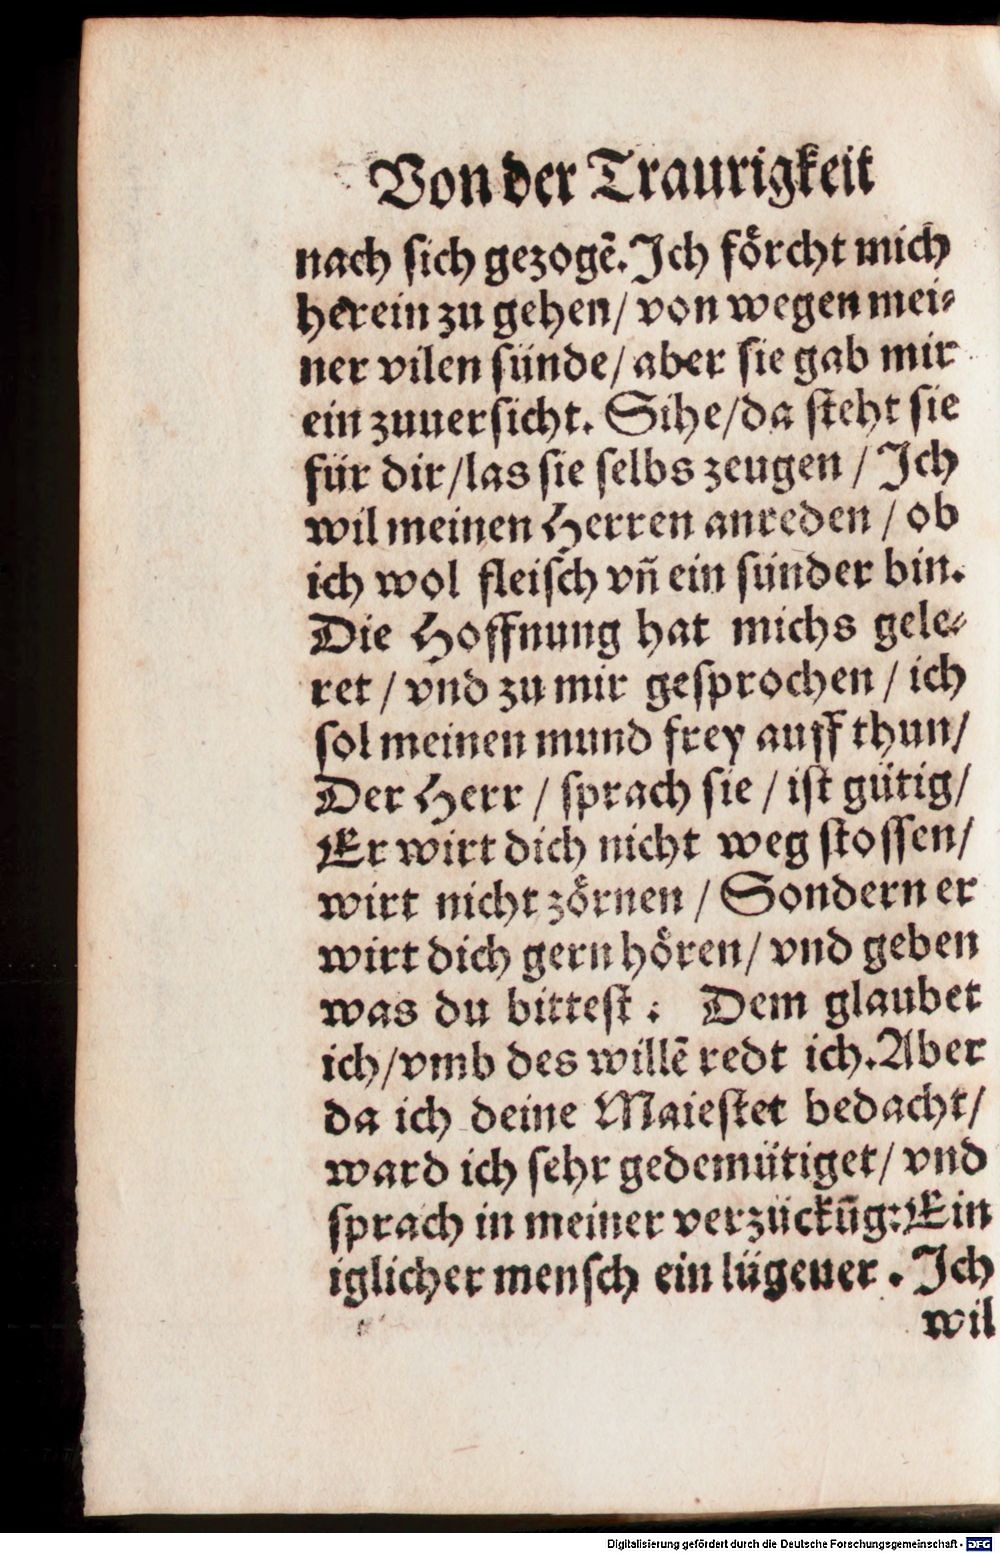 Von der Traurigkeit
nach sich gezogẽ. Ich foͤrcht mich
herein zu gehen/ von wegen mei⸗
ner vilen sünde/ aber sie gab mir
ein zuuersicht. Sihe/da steht sie
für dir/las sie selbs zeugen / Ich
wil meinen Herren anreden / ob
ich wol fleisch vñ ein sünder bin.
Die Hoffnung hat michs gele⸗
ret / vnd zu mir gesprochen / ich
sol meinen mund frey auff thun/
Der Herr / sprach sie / ist gütig/
Er wirt dich nicht weg stossen/
wirt nicht zoͤrnen / Sondern er
wirt dich gern hoͤren/ vnd geben
was du bittest : Dem glaubet
ich/vmb des willẽ redt ich. Aber
da ich deine Maiestet bedacht/
ward ich sehr gedemütiget/ vnd
sprach in meiner verzückũg: Ein
iglicher mensch ein lügener . Ich
wil
Digitalisierung gefördert durch die Deutsche Forschungsgemeinschaft - DFG